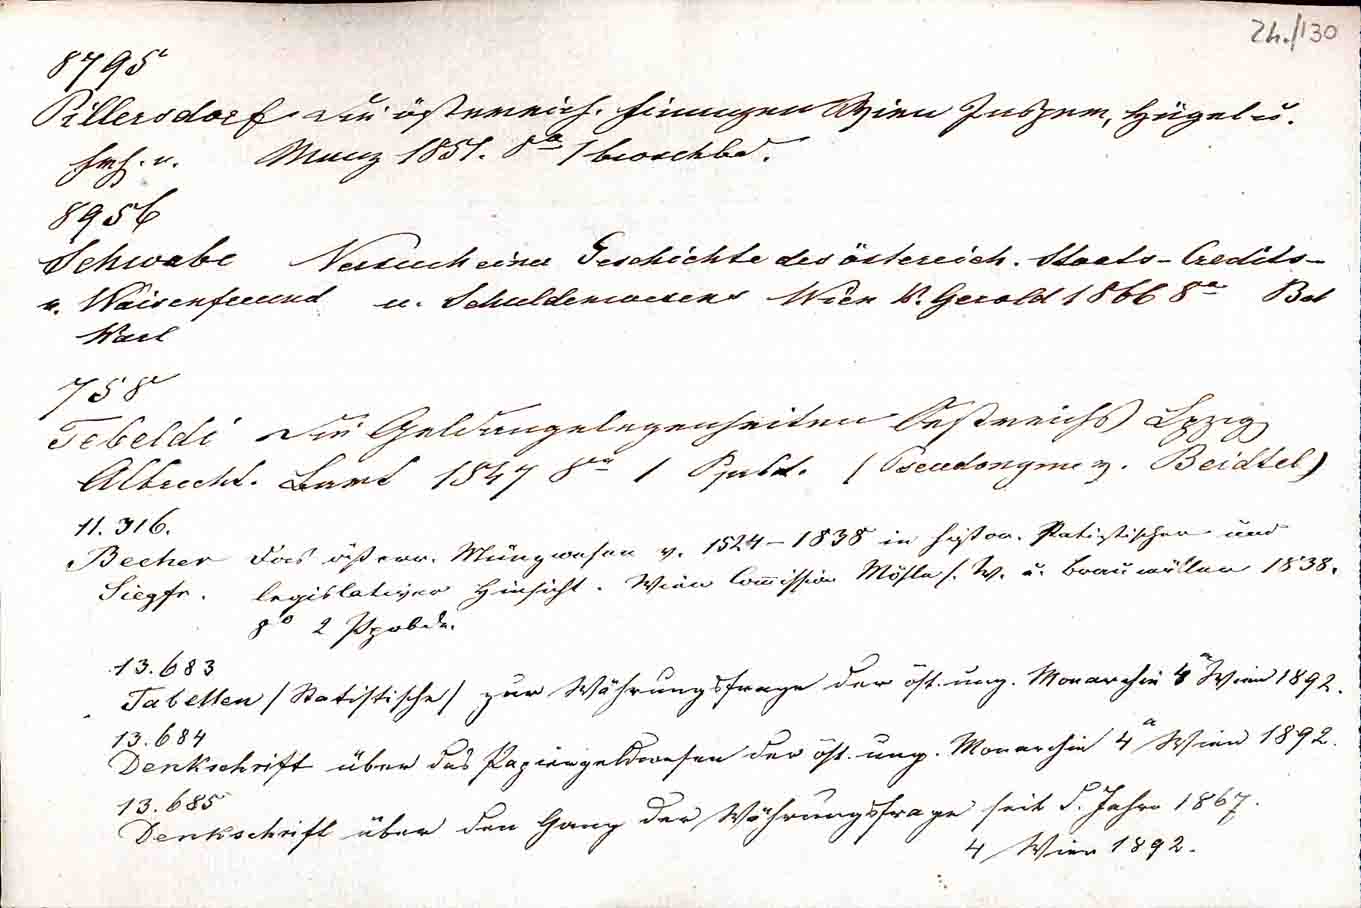 24./130
8795
Pillersdorf Die österreich. Finanzen Wien Jasper, Hügel u.
Frh. v. Manz 1851. 8° 1 broschbd.
8956
Schwabe Versuch einer Geschichte des österreich. Staats-Credits-
v. Waisenfreund u. Schuldenwesens Wien K. Gerold 1866 8° Bd
Karl
758
Tebeldi Die Geldangelegenheiten Oestreichs Lpzig
Albrecht. 1847 8° 1 Ppbd. (Pseudonyme v. Beidtel)
11.316.
Becher das österr. Münzwesen v. 1524-1838 in histor. statistischer und
Siegfr. legislativer Hinsicht. Wien Com̅ission Mösle s. W. u. Braumüller 1838.
8° 2 Ppbde.
13.683
Tabellen / Statistische / zur Währungsfrage der öst. ung. Monarchie 4° Wien 1892.
13.684
Denkschrift über das Papiergeldwesen der öst. ung. Monarchie 4° Wien 1892.
13.685
Denkschrift über den Gang der Währungsfrage seit d. Jahre 1867.
4 Wien 1892.